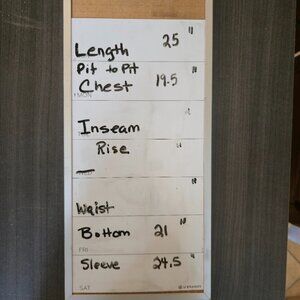 Length 25 "
Pit to Pit
Chest 19.5 "
MON
Inseam "
Rise "
Waist "
Bottom 21 "
FRI
Sleeve 24.5 "
SAT